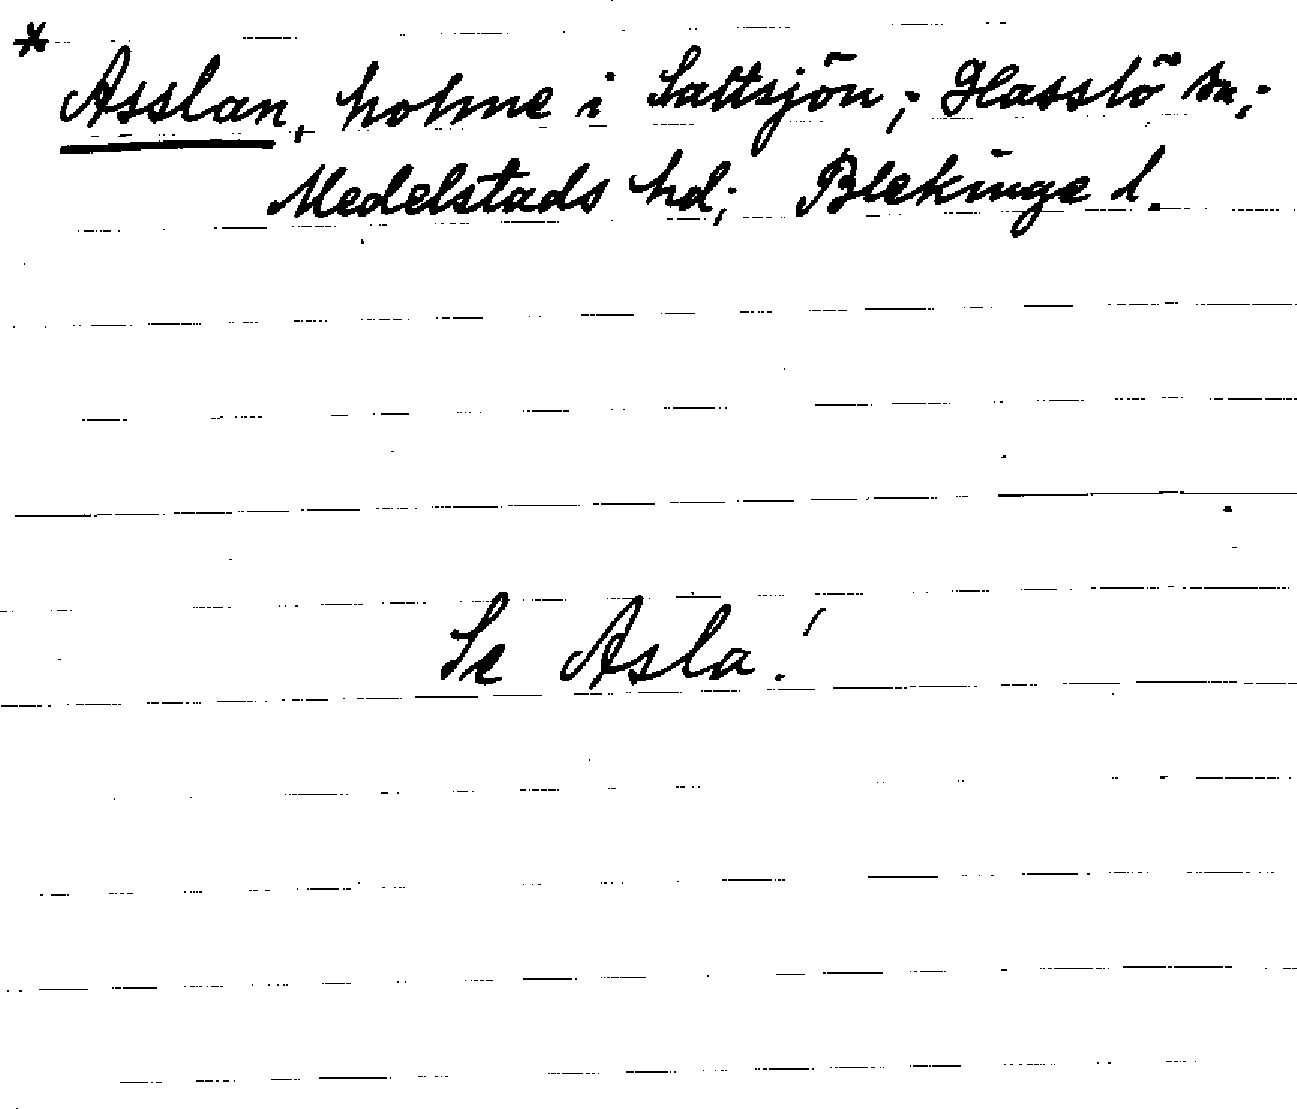 * Asslan, holme i Saltsjön; Hasslö sn;
Medelstads hd; Blekinge l.
Se Asla!